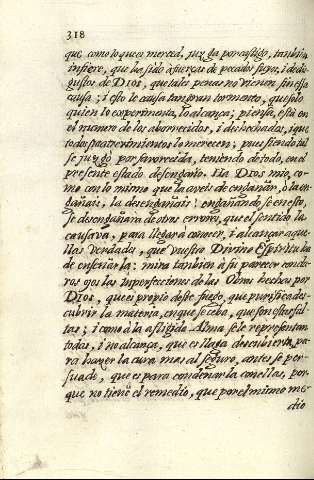 318
que como lo que es merced, juzga por castigo, tambien
infiere, que ha sido à fuerças de pecados suyos, i dis-
gustos de Dios, que tales penas no vienen sin essa
causa; i esto le causa tan gran tormento, que solo
quien lo experimenta, lo alcança; piensa, està en
el numero de los aborrecidos, i desechados, i que
todas sus merecimientos lo merecen; pues siendo assi
se juzgò por favorecida, teniendo de todo, en el
presente estado desengaño. Ha Dios mio, co-
mo con lo mismo que la aveis de engañar, ò la en-
gañais, la desengañais! engañandose en esto,
se desengañarà de otros errores, que el sentido la
causava, para llegar à conocer, i alcançar aque-
llas verdades, que vuestro Divino Espiritu ha
de enseñarla; mira tambien à su parecer con cla-
ros ojos las imperfecciones de las Obras hechas por
Dios, que es proprio desse fuego, que purifica des-
cubrir la materia, en que se ceba, que son estas fal-
tas; i como à la afligida Alma se le representan
todas, i no alcança, que es llaga descubierta, pa-
ra hazer la cura mas al seguro, antes se per-
suade, que es para condenarla con ellas, por-
que no tiene el remedio, que por el mismo me-
dio